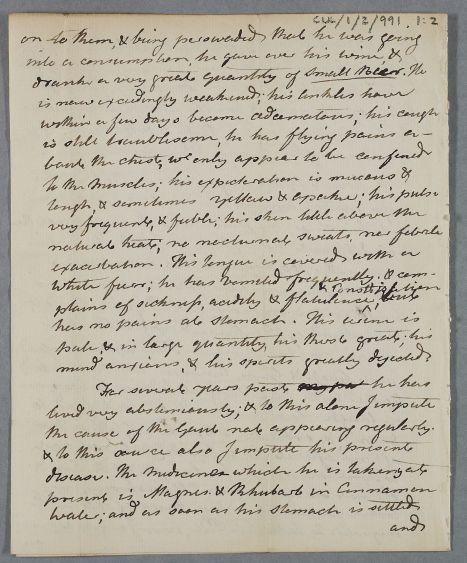 CUL/1/2/991 1:2
on to them, & being perswaded that he was going
into a consumption, he gave over his wine &
drank a very great quantity of Small Beer. He
is now exceedingly weakened; his ankles have
within a few days become œdematous; his cough
is still troublesome, he has flying pains a-
bout the chest, wc. only appear to be confined
to the muscles; his expectoration is mucous &
tough, & sometimes yellow & opake; his pulse
very frequent, & feeble; his skin little above the
natural heat; no nocturnal sweats, nor febrile
exacerbation. His tongue is covered with a
white furr; he has vomited frequently. & com-
plains of sickness, acidity & flatulence, & constipation but
has no pains at stomach. His urine is
pale, & in large quantity, his thirst great; his
mind anxious & his spirits greatly dejected
For several years past he has
lived very abstemiously; & to this alone I impute
the cause of the Gout not appearing regularly.
& to this source also I impute his present
disease. The medicines which he is taking at
present is Magnes. & Rhubarb in Cinnamon
water; and as soon as his stomach is settled
and